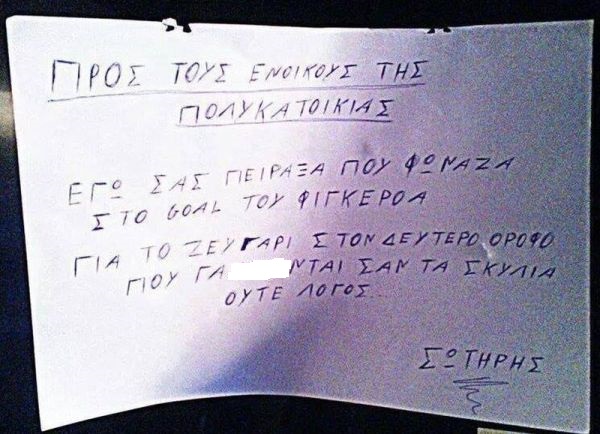 ΠΡΟΣ ΤΟΥΣ ΕΝΟΙΚΟΥΣ ΤΗΣ
ΠΟΛΥΚΑΤΟΙΚΙΑΣ
ΕΓΩ ΣΑΣ ΠΕΙΡΑΞΑ ΠΟΥ ΦΩΝΑΖΑ
ΣΤΟ GOAL ΤΟΥ ΦΙΓΚΕΡΟΑ
ΓΙΑ ΤΟ ΖΕΥΓΑΡΙ ΣΤΟΝ ΔΕΥΤΕΡΟ ΟΡΟΦΟ
ΠΟΥ ΓΑ ΝΤΑΙ ΣΑΝ ΤΑ ΣΚΥΛΙΑ
ΟΥΤΕ ΛΟΓΟΣ...
ΣΩΤΗΡΗΣ